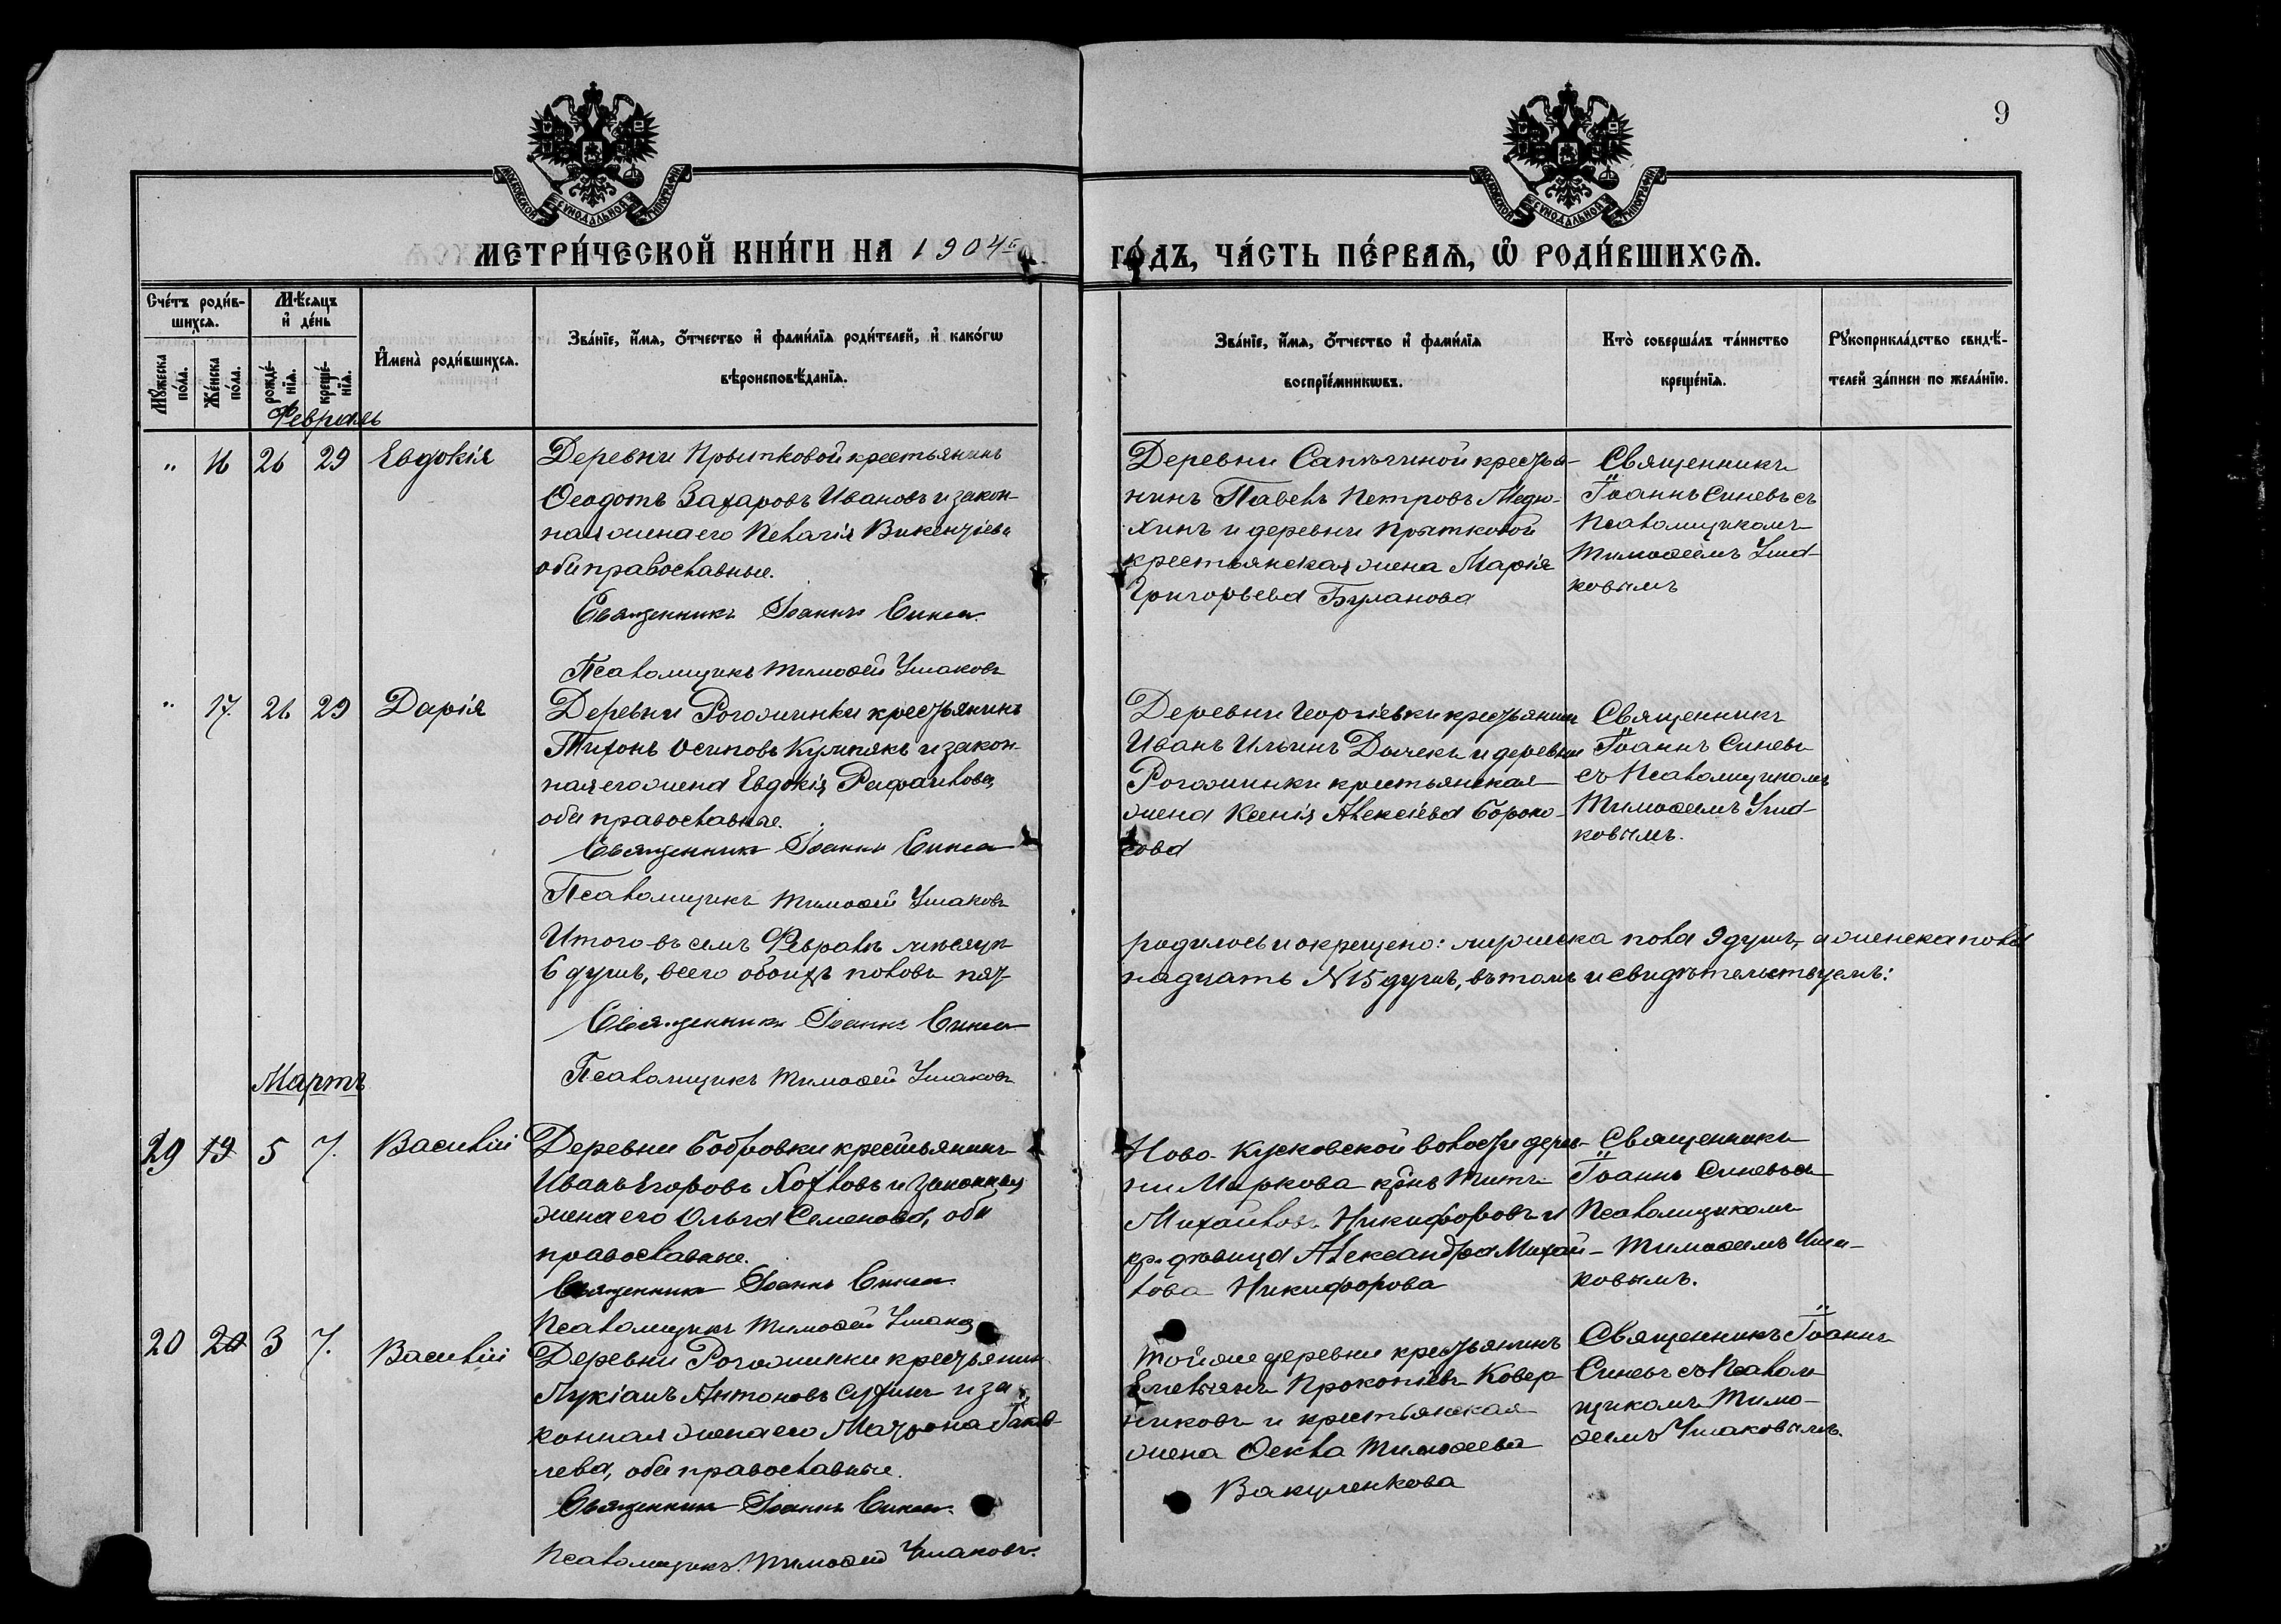 9
МОСКОВСКОЙ СѴНОДАЛЬНОЙ ТИПОГРАФІИ
МОСКОВСКОЙ СѴНОДАЛЬНОЙ ТИПОГРАФІИ
МЕТРИ́ЧЕСКОЙ КНИ́ГИ НА 1904
ГО́ДЪ, ЧА́СТЬ ПЕ́РВАѦ, Ѡ҆ РОДИ́ВШИХСѦ.
Сче́тъ роди́в-
шихсѧ.
Мꙋ́жеска по́ла.
Же́нска по́ла.
Мѣ́сѧцъ
и҆ де́нь
рожде́-
нїѧ.
креще́-
нїѧ.
И҆мена̀ роди́вшихсѧ.
Зва́нїе, и҆́мѧ, ѻ҆́тчество и҆ фами́лїѧ роди́телей, и҆ како́гѡ
вѣроисповѣ́данїѧ.
Зва́нїе, и҆́мѧ, ѻ҆́тчество и҆ фами́лїѧ
воспрїе́мникѡвъ.
Кто̀ соверша́лъ та́инство
креще́нїѧ.
Рꙋкоприкла́дство свидѣ́-
телей за́писи по жела́нїю.
Февраль
" 16 26 29 Евдокія
Деревни Прытковой крестьянинъ
Ѳеодотъ Захаровъ Ивановъ и закон-
ная жена его Пелагія Викентіева
оби православные.
Священникъ Іоаннъ Синев
Псаломщикъ Тимоѳей Ушаковъ
Деревни крестья-
нинъ Павелъ Петровъ Медю-
хинъ и деревни Прытковой
крестьянская жена Марія
Григорьева Буланова
Священникъ
Іоаннъ Синевъ съ
Псаломщикомъ
Тимоѳеемъ Уша-
ковымъ
" 17. 26 29 Дарія
Деревни Рогожинки крестьянинъ
Тихонъ Осиповъ и закон-
ная его жена Евдокія
оби православные.
Священникъ Іоаннъ Синев
Псаломщикъ Тимоѳей Ушаковъ
Деревни Георгіевки крестьянин
Иванъ Ильинъ и деревни
Рогожинки крестьянская
жена Ксенія Алексіева Бороно-
сова
Священникъ
Іоаннъ Синевъ
съ Псаломщикомъ
Тимоѳеемъ Уша-
ковымъ.
Итого въ семъ Февралѣ мѣсяцѣ родилось и окрещено: мужеска пола 9 душъ, а женска пола
6 душъ, всего обоихъ половъ пят надцать № 15 душъ, въ томъ и свидѣтельствуемъ:
Священникъ Іоаннъ Синев
Псаломщикъ Тимоѳей Ушаковъ
Мартъ
19 19 5 7. Василій
Деревни Бобровки крестьянинъ
Иванъ Егоровъ Хохловъ и законная
жена его Ольга Семенова, оби
православные.
Священникъ Іоаннъ Синев
Псаломщикъ Тимоѳей Ушаков
Ново-Кусковской волости дерев-
ни Маркова кр-нъ Титъ
Михайловъ Никифоровъ и
кр. дѣвица Александра Михай-
лова Никифорова
Священникъ
Іоаннъ Синевъ съ
Псаломщикомъ
Тимоѳеемъ Уша-
ковымъ.
20 20 3 7. Василій
Деревни Рогожинки крестьянин
Лукіанъ Антоновъ и за-
конная жена его Матрона Яков-
лева, оби православные.
Священникъ Іоаннъ Синев.
Псаломщикъ Тимоѳей Ушаковъ.
Той же деревни крестьянинъ
Емельянъ Прокопіевъ Ковер-
никовъ и крестьянская
жена Ѳекла Тимоѳеева
Вакуленкова
Священникъ Іоаннъ
Синевъ съ Псалом-
щикомъ Тимо-
ѳеемъ Ушаковымъ.